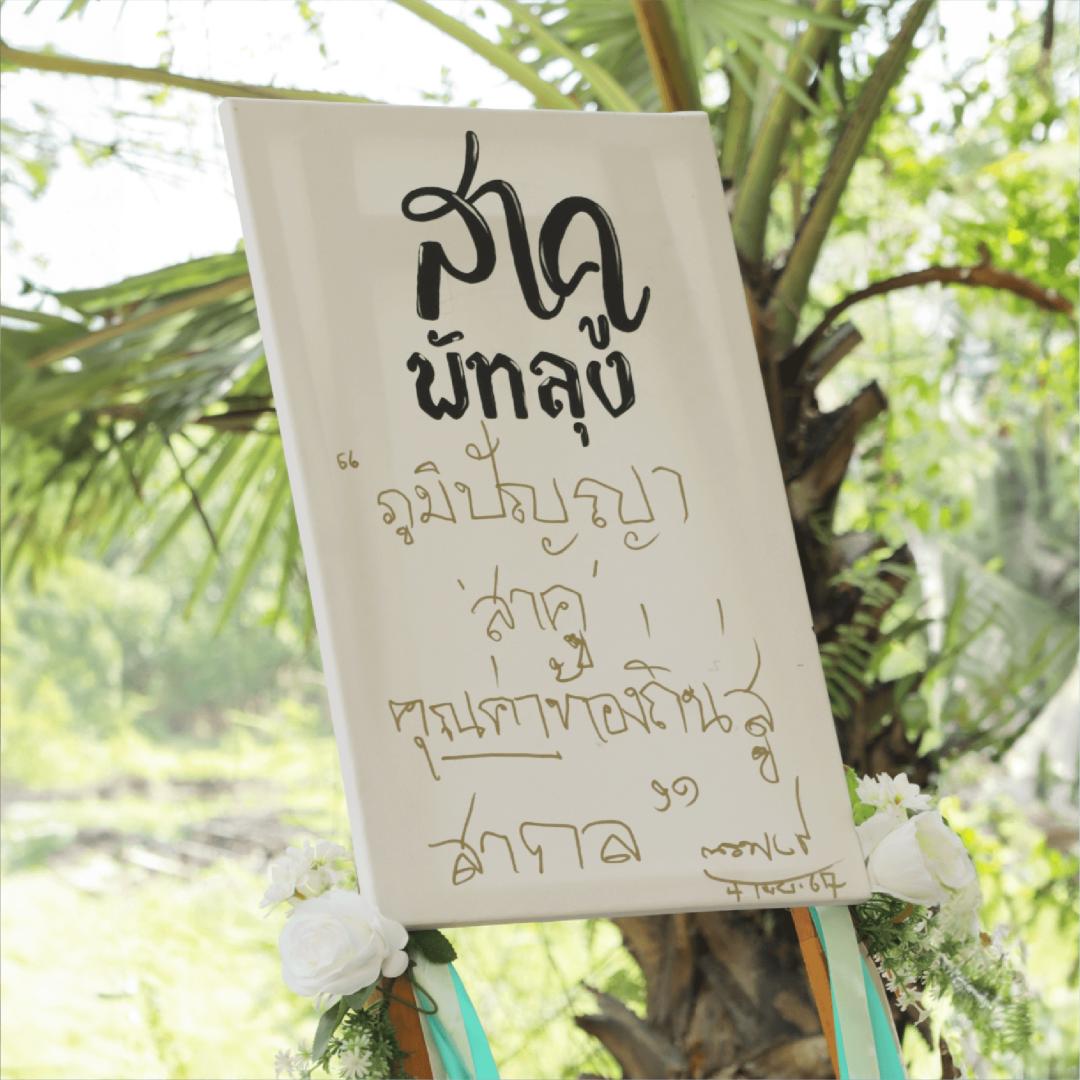 สาคู
พัทลุง
“ภูมิปัญญา
สาคู่
คุณค่าท้องถิ่นสู่
สากล”
4 เม.ย. 67